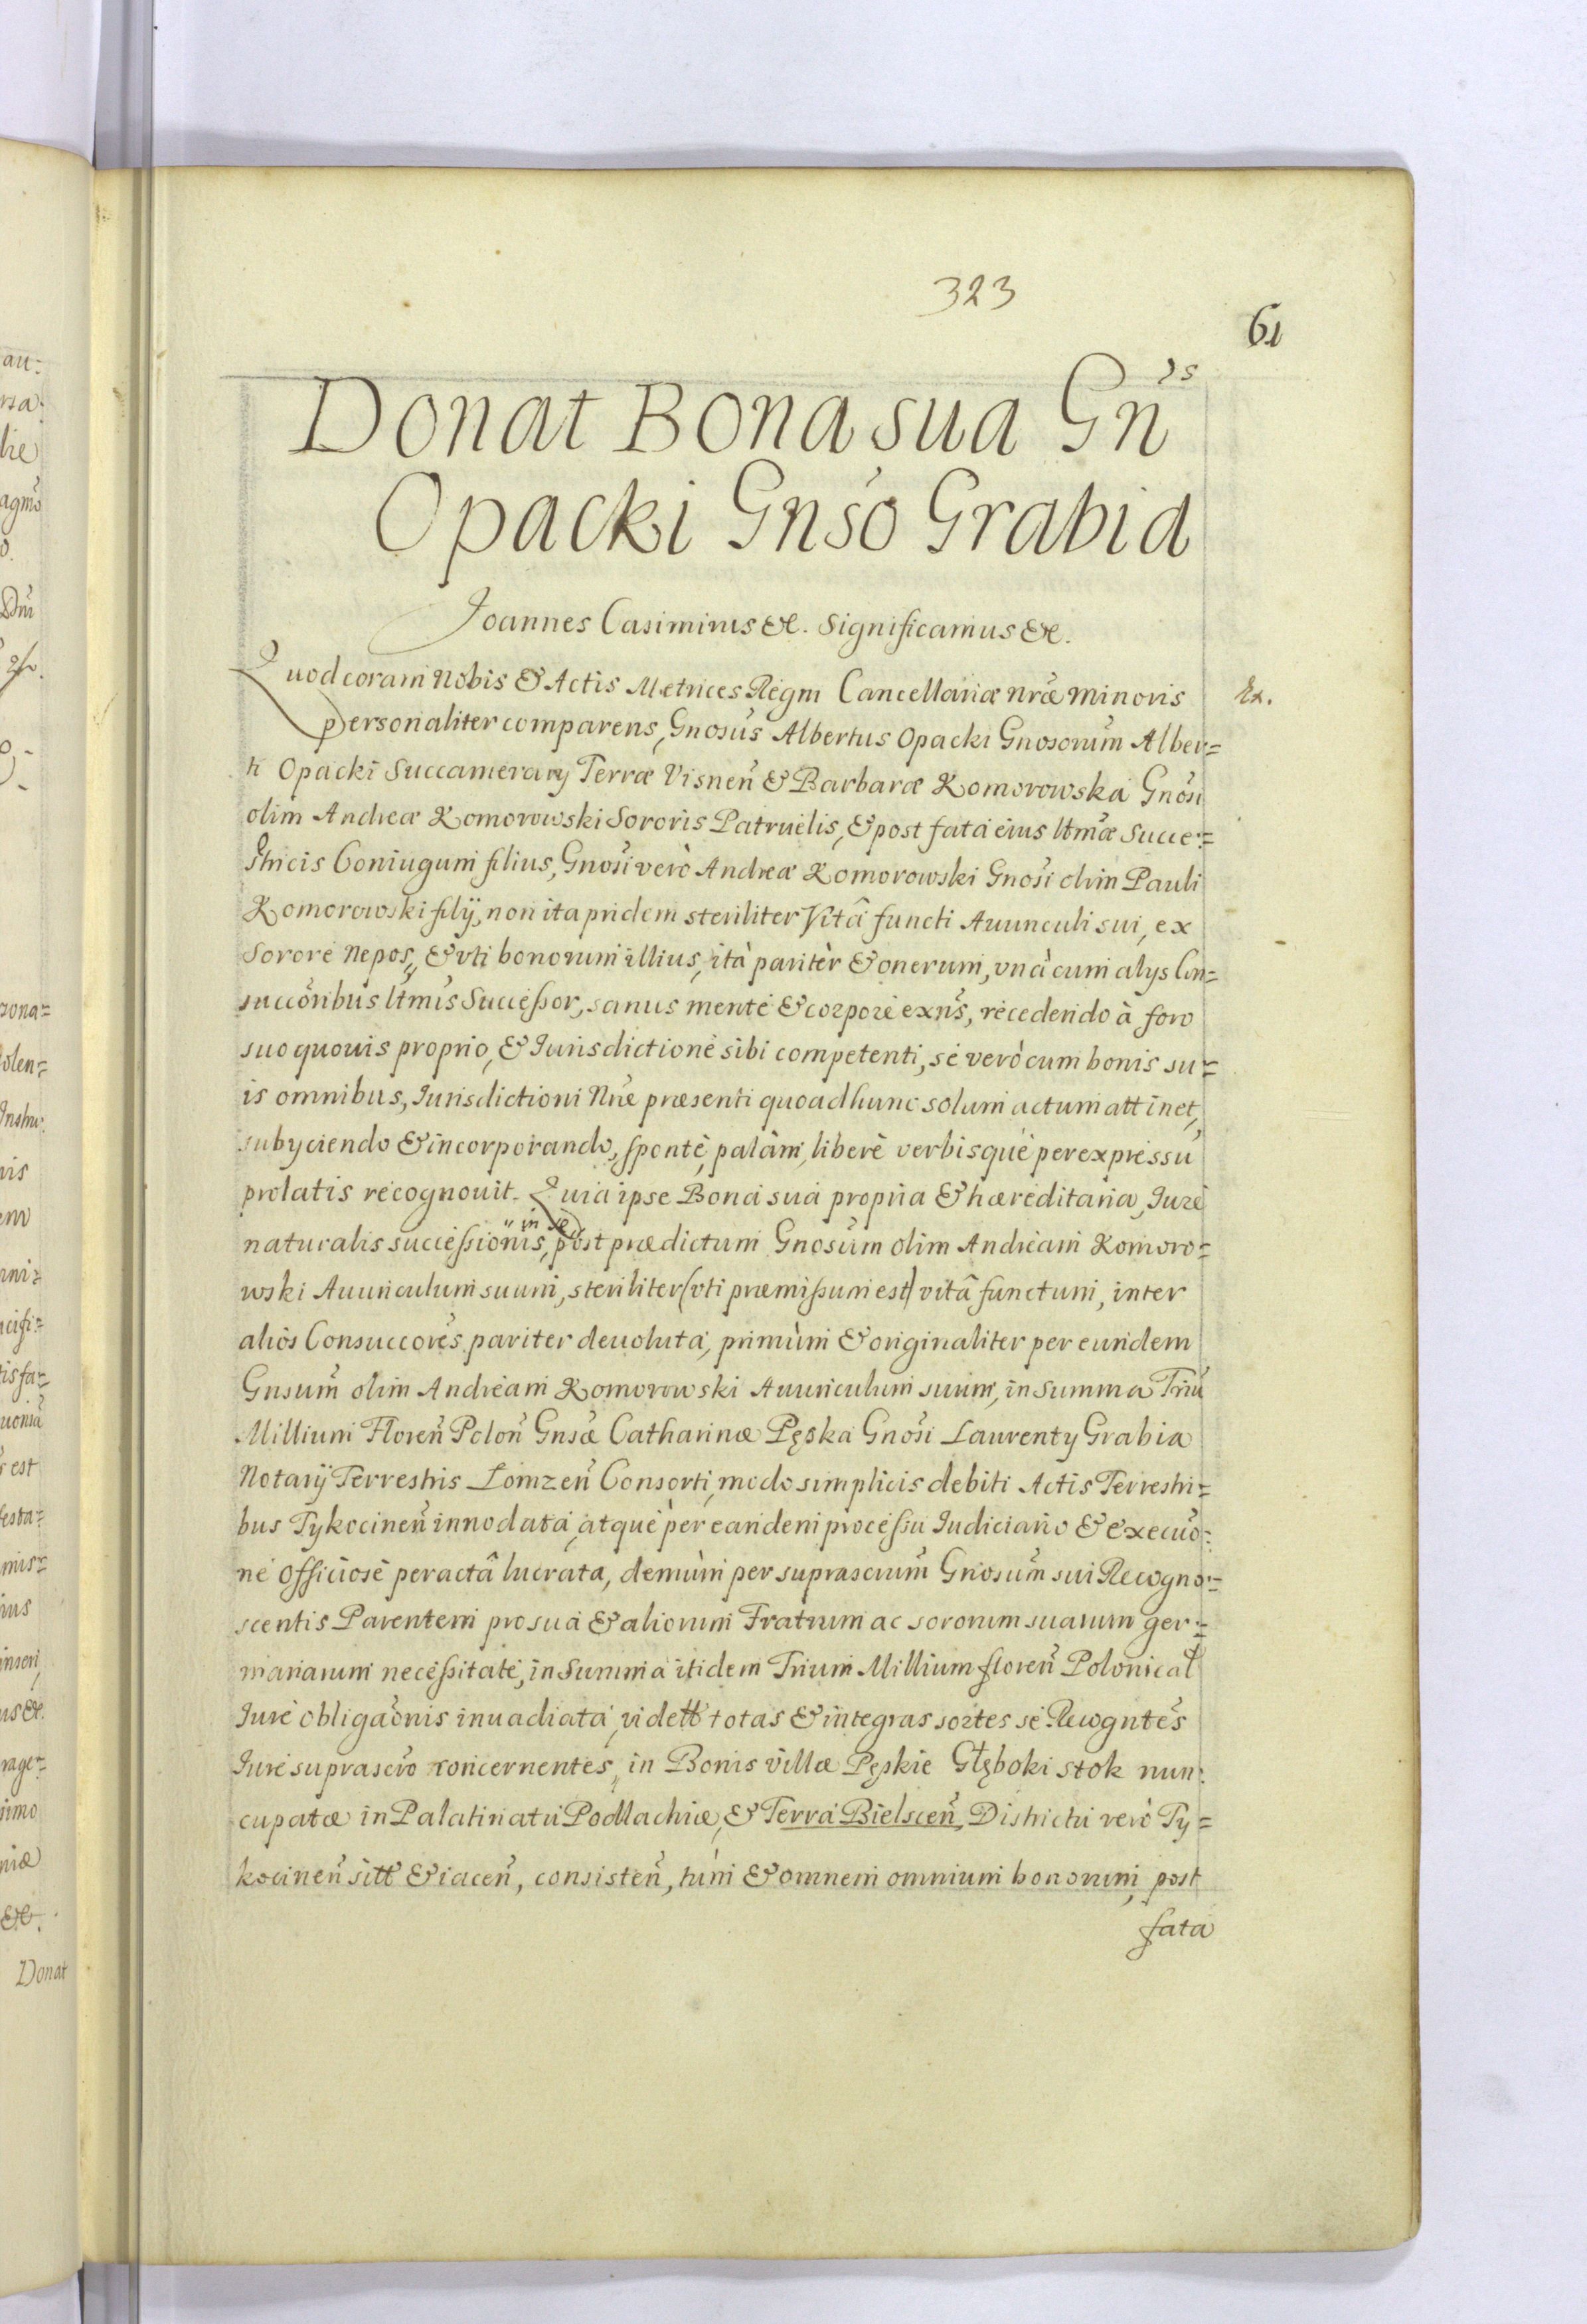 323
61
Donat Bona sua Gn̄s
Opacki Gnso Grabia
Joannes Casimirus &c. Significamus &c.
Quod coram Nobis & Actis Metrices Regni Cancellariæ nræ Minoris
Ex.
personaliter comparens, Gnosus Albertus Opacki Gnosorum Alber=
ti Opacki Succamerarij Terræ Visnen̄ & Barbaræ Komorowska Gnosi
olim Andreæ Komorowski Sororis Patruelis, & post fata eius ltmæ Succe=
stricis Coniugum filius, Gnosi verò Andreæ Komorowski Gnosi olim Pauli
Komorowski filij, non ita pridem steriliter Vitâ functi Auunculi sui, ex
Sorore Nepos, & vti bonorum illius, ità paritèr & onerum, vnà cum alys Con=
succoribus ltmis Successor, sanus mente & corpore exn̄s, recedendo à foro
suo quouis proprio, & Iurisdictione sibi competenti, se verò cum bonis su=
is omnibus, Iurisdictioni Nræ præsenti quoad hunc solum actum attinet,
subyciendo & incorporando, spontè, palàm, liberè verbisque per expressū
prolatis recognouit. Quia ipse Bona sua propria & hæreditaria, Iure
naturalis successionis, in se post prædictum Gnosum olim Andream Komoro=
wski Auunculum suum, steriliter (vti præmissum est) vitâ functum, inter
alios Consuccores pariter deuoluta, primùm & originaliter per eundem
Gnsum olim Andream Komorowski Auunculum suum, in Summa Triū
Millium Floren̄ Polon̄ Gnsæ Catharinæ Pęska Gnosi Laurenty Grabia
Notarij Terrestris Łomzen̄ Consorti, modo simplicis debiti Actis Terrestri=
bus Tykocinen̄ innodata, atque per eandem processu Iudiciario & execuo=
ne officiosè peractâ lucrata, demùm per suprascrum Gnosum sui Recogno=
scentis Parentem pro sua & aliorum Fratrum ac sororum suarum ger=
manarum necessitate, in Summa itidem Trium Millium floren̄ Polonical
Iure obligaonis inuadiata, vidett totas & integras sortes se Recogntes
Iure suprascro concernentes, in Bonis villæ Pęskie Głęboki stok nun=
cupatæ in Palatinatu Podlachiæ, & Terra Bielscen̄, Districtu verò Ty=
kocinen̄ sitt & iacen̄, consisten̄, tùm & omnem omnium bonorum, post
fata